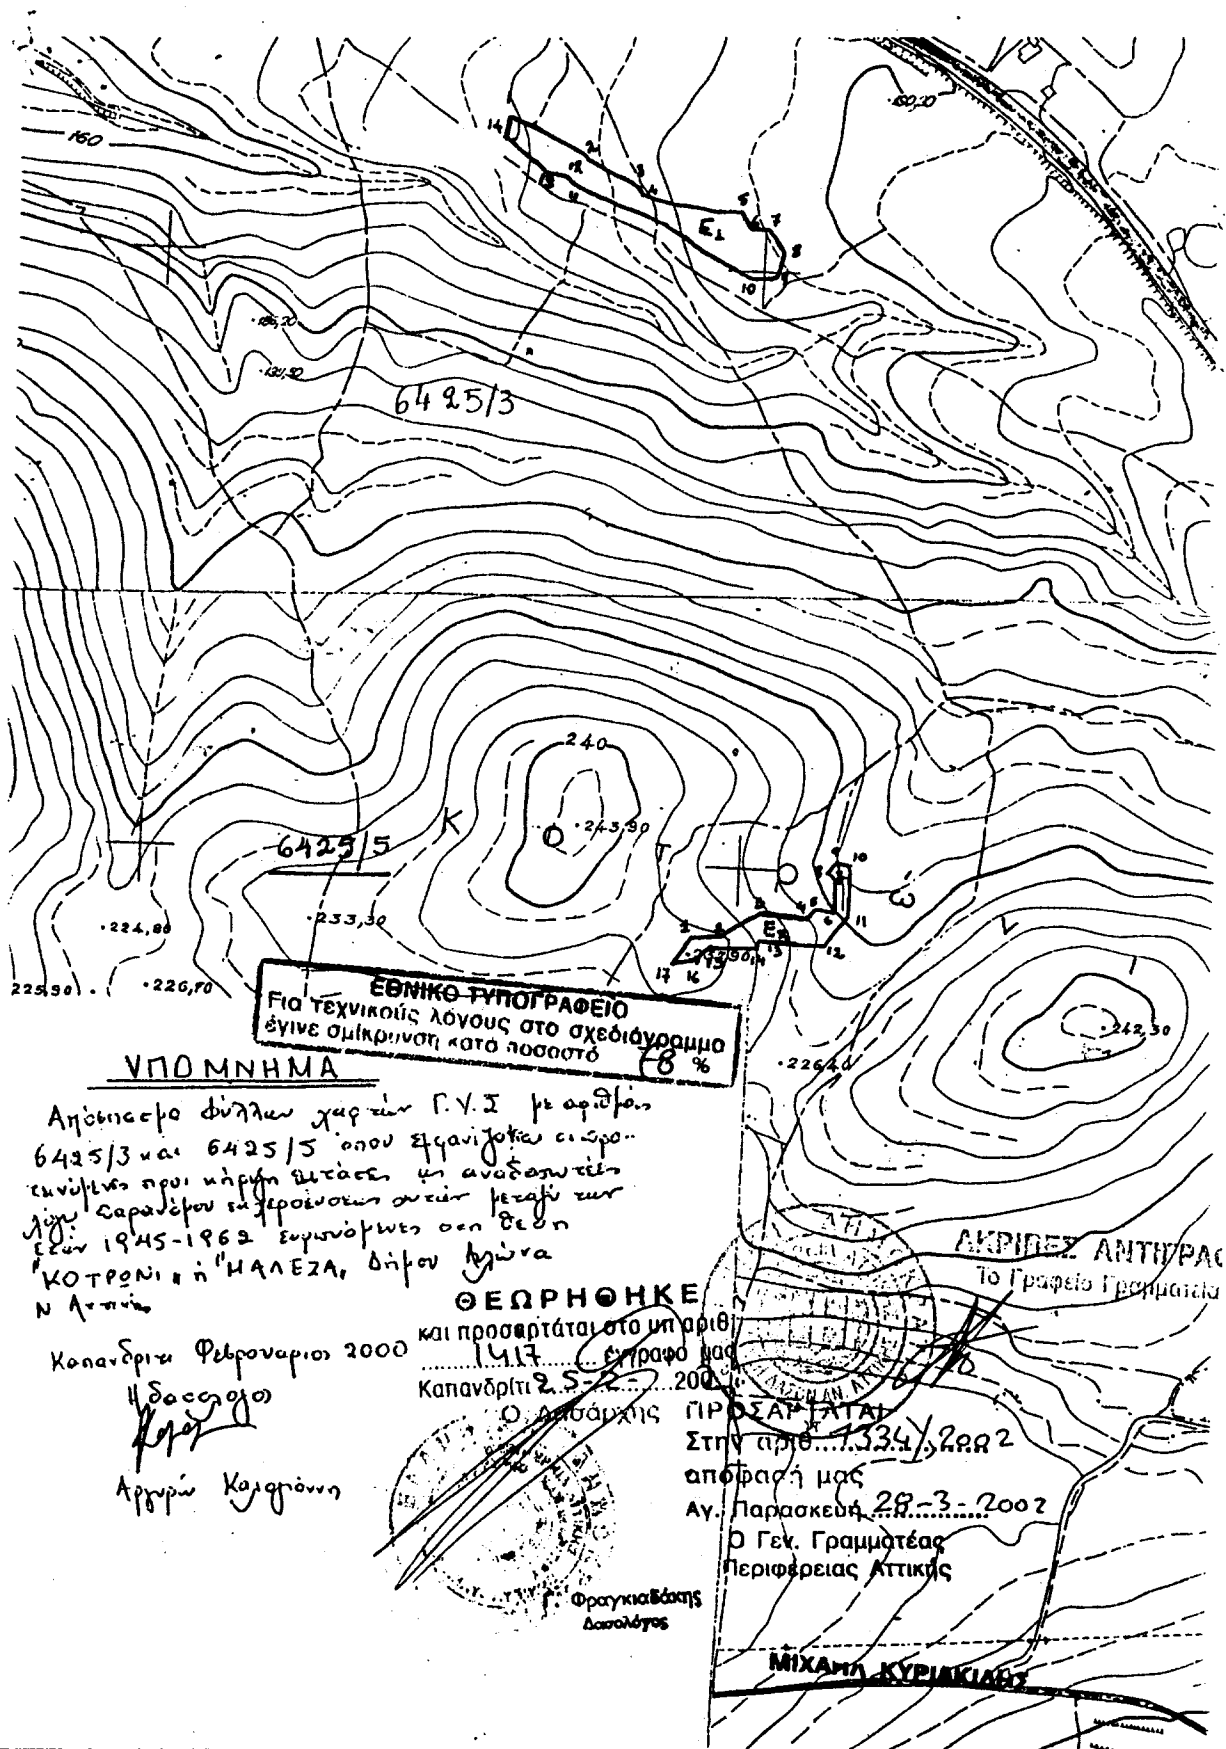 160
·180,20
14
2
3
4
13
12
11
5
6
7
Ε1
8
9
10
·186,20
6425/3
240
·243,90
6425/5
Κ
Τ
ω
·233,30
·224,80
225,90
·226,70
9
10
8
1
2
3
4
5
6
11
12
13
14
15
16
17
·242,30
·226,40
ΕΘΝΙΚΟ ΤΥΠΟΓΡΑΦΕΙΟ
Για τεχνικούς λόγους στο σχεδιάγραμμα
έγινε σμίκρυνση κατά ποσοστό 78 %
ΥΠΟΜΝΗΜΑ
Απόσπασμα φύλλων χαρτών Γ.Υ.Σ με αριθμός
6425/3 και 6425/5 όπου εμφανίζονται οι προ-
τεινόμενες προς κήρυξη εκτάσεις ως αναδασωτέες
λόγω παρανόμου εκχερσώσεως αυτών μεταξύ των
ετών 1945-1962 ευρισκόμενες στη θέση
"ΚΟΤΡΩΝΙ" ή "ΜΑΛΕΖΑ" Δήμου Αυλώνα
Ν Αττικής
Καπανδρίτι Φεβρουάριος 2000
Η δασολόγος
Αργυρώ Καλογιάννη
ΘΕΩΡΗΘΗΚΕ
και προσαρτάται στο υπ αριθ
1417 έγγραφο μας
Καπανδρίτι 25-2- 200
Ο Δασάρχης
Γ. Φραγκιαδάκης
Δασολόγος
ΑΚΡΙΒΕΣ ΑΝΤΙΓΡΑΦ
Το Γραφείο Γραμματεία
ΠΡΟΣΑΡΤΑΤΑΙ
Στην αριθ. 1334/2002
απόφασή μας
Αγ. Παρασκευή 28-3-2002
Ο Γεν. Γραμματέας
Περιφέρειας Αττικής
ΜΙΧΑΗΛ ΚΥΡΙΑΚΙΔΗΣ